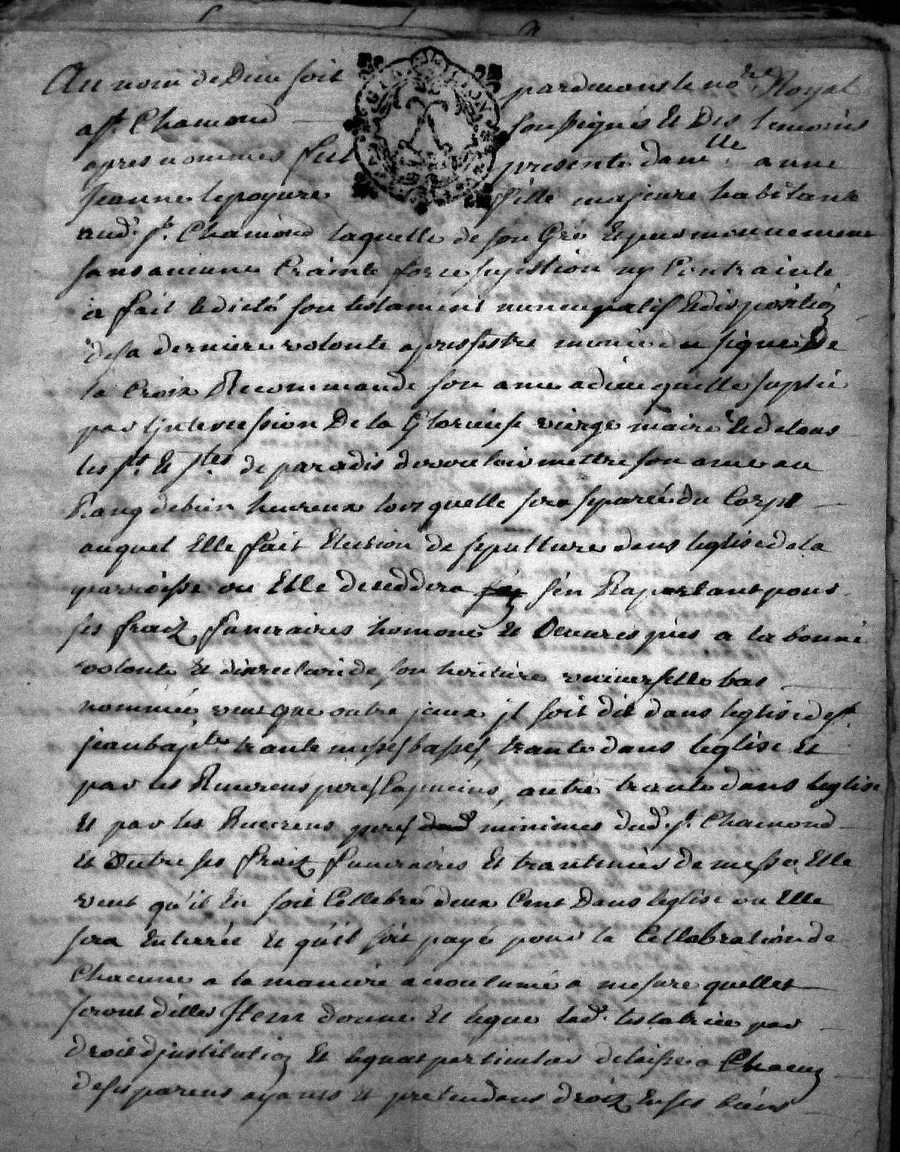 Au nom de Dieu soit pardevant le no.re Royal
a St. Chamond soussigné Et Des temoins
apres nommes fut presente dam.lle anne
jeanne lepayure fille majeure habitante
aud. St. Chamond laquelle de son Gré Et pur mouvement
sans aucune Crainte force sujestion ny Contrainte
a fait Et dicté son testament nuncupatif Et disposition
de sa derniere volonte apres s'estre munie du signe De
la Croix Recommande son ame a dieu quelle suplie
par l'intercession De la Glorieuse vierge marie Et de tous
les Sts. Et Stes. de paradis de vouloir mettre son ame au
Rang de bien heureux lors quelle sera separée du Corps
auquel Elle fait Election de sepulture dans leglise de la
parroisse ou Elle deceddera s'en Raportant pour
ses fraix funeraires homone Et oeuvres pies a la bonne
volonte Et discretion de son heritiere universelle bas
nommée veut que outre jceux jl soit dit dans leglise de St.
jean bap.te trante messes basses, trante dans leglise Et
par les Reverens peres Capucins, autre trante dans leglise
Et par les Reverens peres minimes dud. St. Chamond
Et outre ses fraix funeraires Et de messe Elle
veut qu'il En soit Cellebré deux Cent Dans leglise ou Elle
sera Enterrée Et qu'il soit payé pour la Cellebration de
Chacune a la maniere acoutumé a mesure quelles
seront dittes Item donne Et legue lad. testatrice par
droit d'jnstitution Et legat particulier delaisse a Chacun
de ses parens ayants Et pretendans droit En ses biens